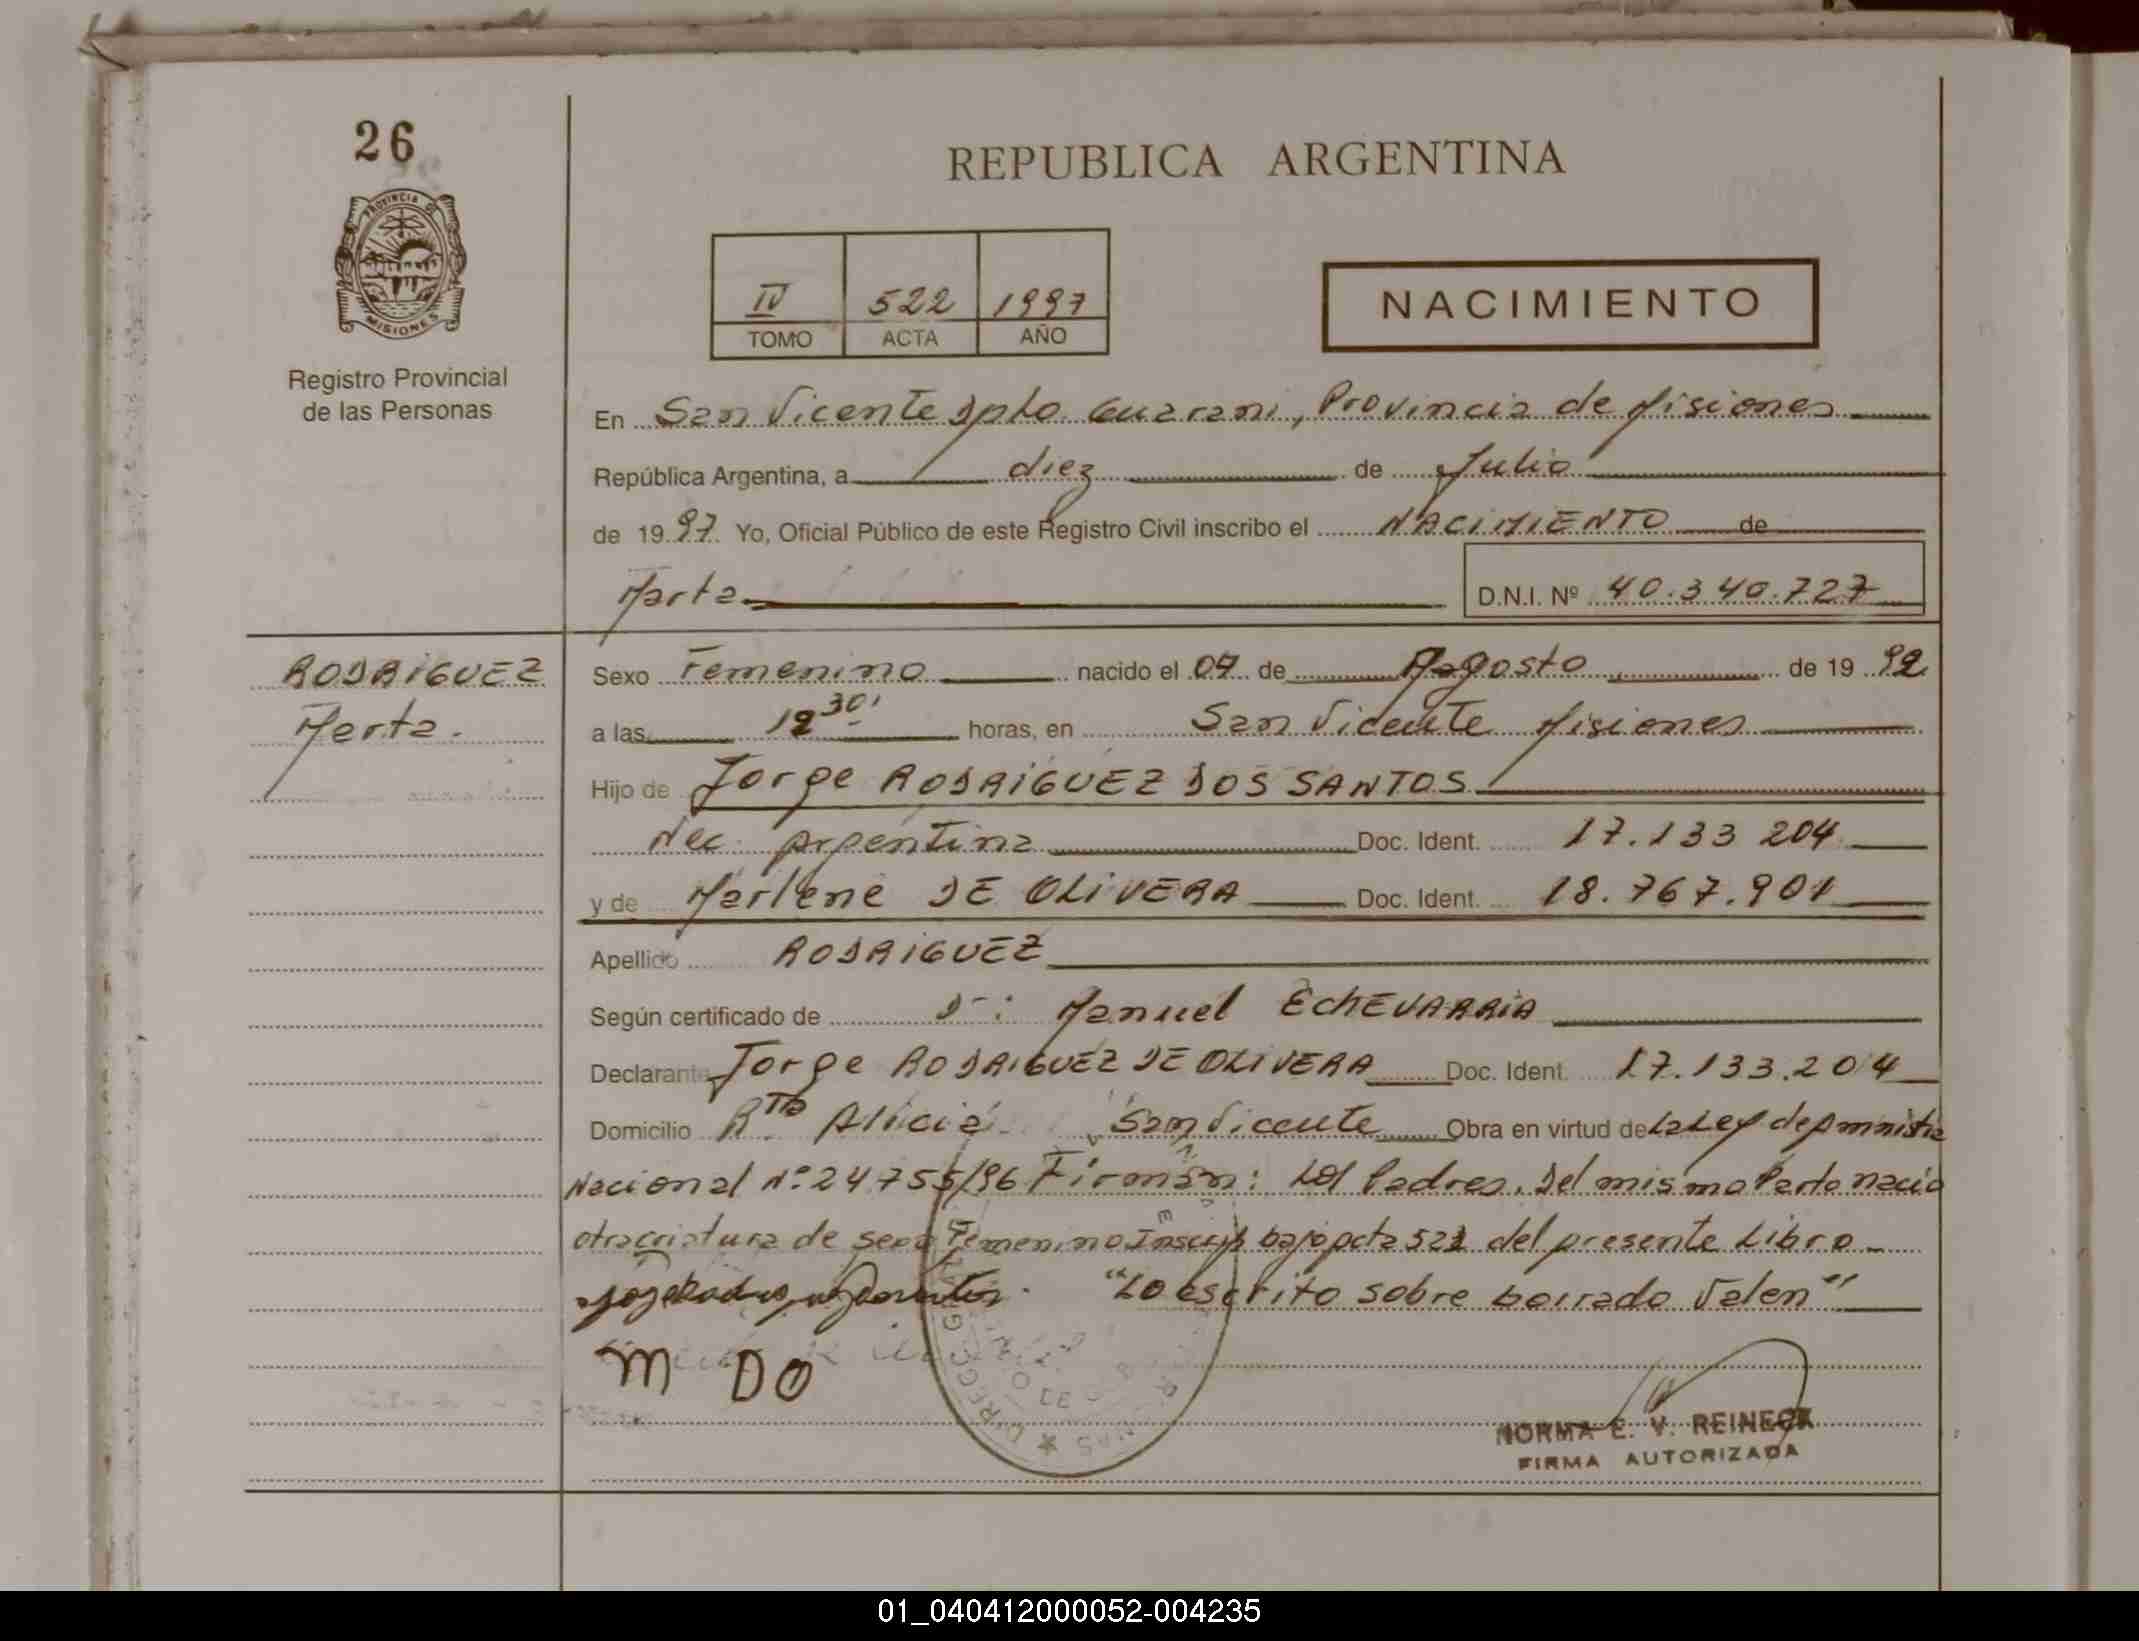 26
PROVINCIA DE
MISIONES
Registro Provincial
de las Personas
REPUBLICA ARGENTINA
IV 522 1997
TOMO ACTA AÑO
NACIMIENTO
En San Vicente Dpto. Guarani, Provincia de Misiones
República Argentina, a diez de Julio
de 1997 Yo, Oficial Público de este Registro Civil inscribo el NACIMIENTO de
Marta
D.N.I. Nº 40.340.727
RODRIGUEZ
Marta.
Sexo Femenino nacido el 07 de Agosto de 1992
a las 12 30' horas, en San Vicente Misiones
Hijo de Jorge RODRIGUEZ DOS SANTOS
Nac. Argentina Doc. Ident. 17.133 204
y de Marlene DE OLIVERA Doc. Ident. 18.767.901
Apellido RODRIGUEZ
Según certificado de Dr: Manuel EchEVARRIA
Declarante Jorge RODRIGUEZ DE OLIVERA Doc. Ident. 17.133.204
Domicilio Rta Alicia San Vicente Obra en virtud de La Ley de Amnistia
Nacional Nº 24755/96 Firman: Los Padres. Del mismo Parto nacio
otra criatura de sexo Femenino Inscrip bajo acta 521 del presente Libro
"Lo escrito sobre borrado Valen"
M DO
NORMA E. V. REINECK
FIRMA AUTORIZADA
01_040412000052-004235